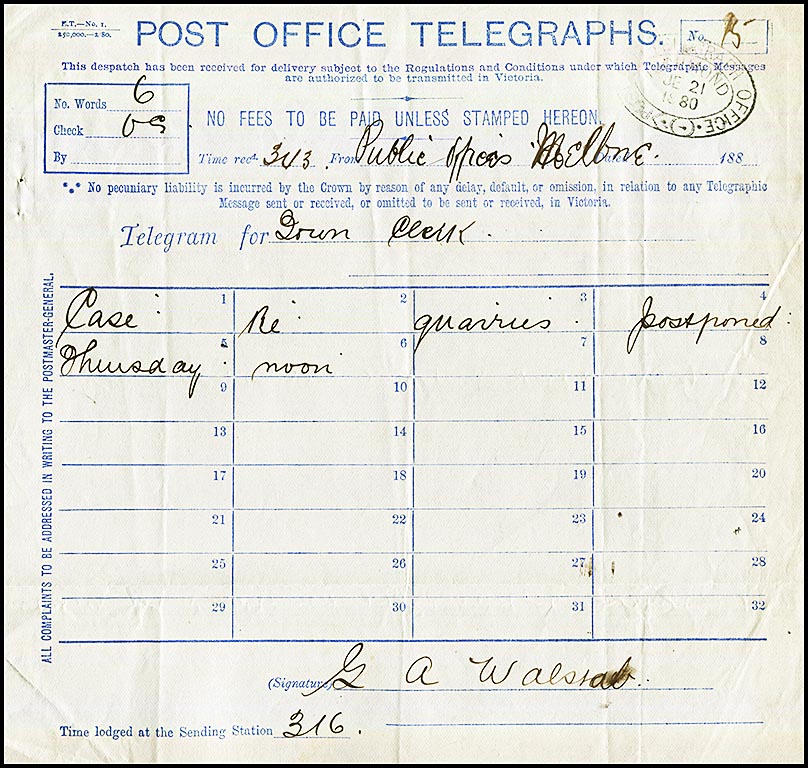 E.T.—No. 1.
250,000.—2 80.
POST OFFICE TELEGRAPHS.
No. 15
This despatch has been received for delivery subject to the Regulations and Conditions under which Telegraphic Messages
are authorized to be transmitted in Victoria.
TELEGRAPH OFFICE
RICHMOND
JE 21
1880
No. Words 6
Check OS
By
NO FEES TO BE PAID UNLESS STAMPED HEREON.
Time recd. 343. From Public offices Melbne. 188
No pecuniary liability is incurred by the Crown by reason of any delay, default, or omission, in relation to any Telegraphic
Message sent or received, or omitted to be sent or received, in Victoria.
Telegram for Town Clerk.
1 2 3 4
Case Re quarries postponed
5 6 7 8
Thursday noon
9 10 11 12
13 14 15 16
17 18 19 20
21 22 23 24
25 26 27 28
29 30 31 32
ALL COMPLAINTS TO BE ADDRESSED IN WRITING TO THE POSTMASTER-GENERAL.
(Signature) G A Walstab.
Time lodged at the Sending Station 316.